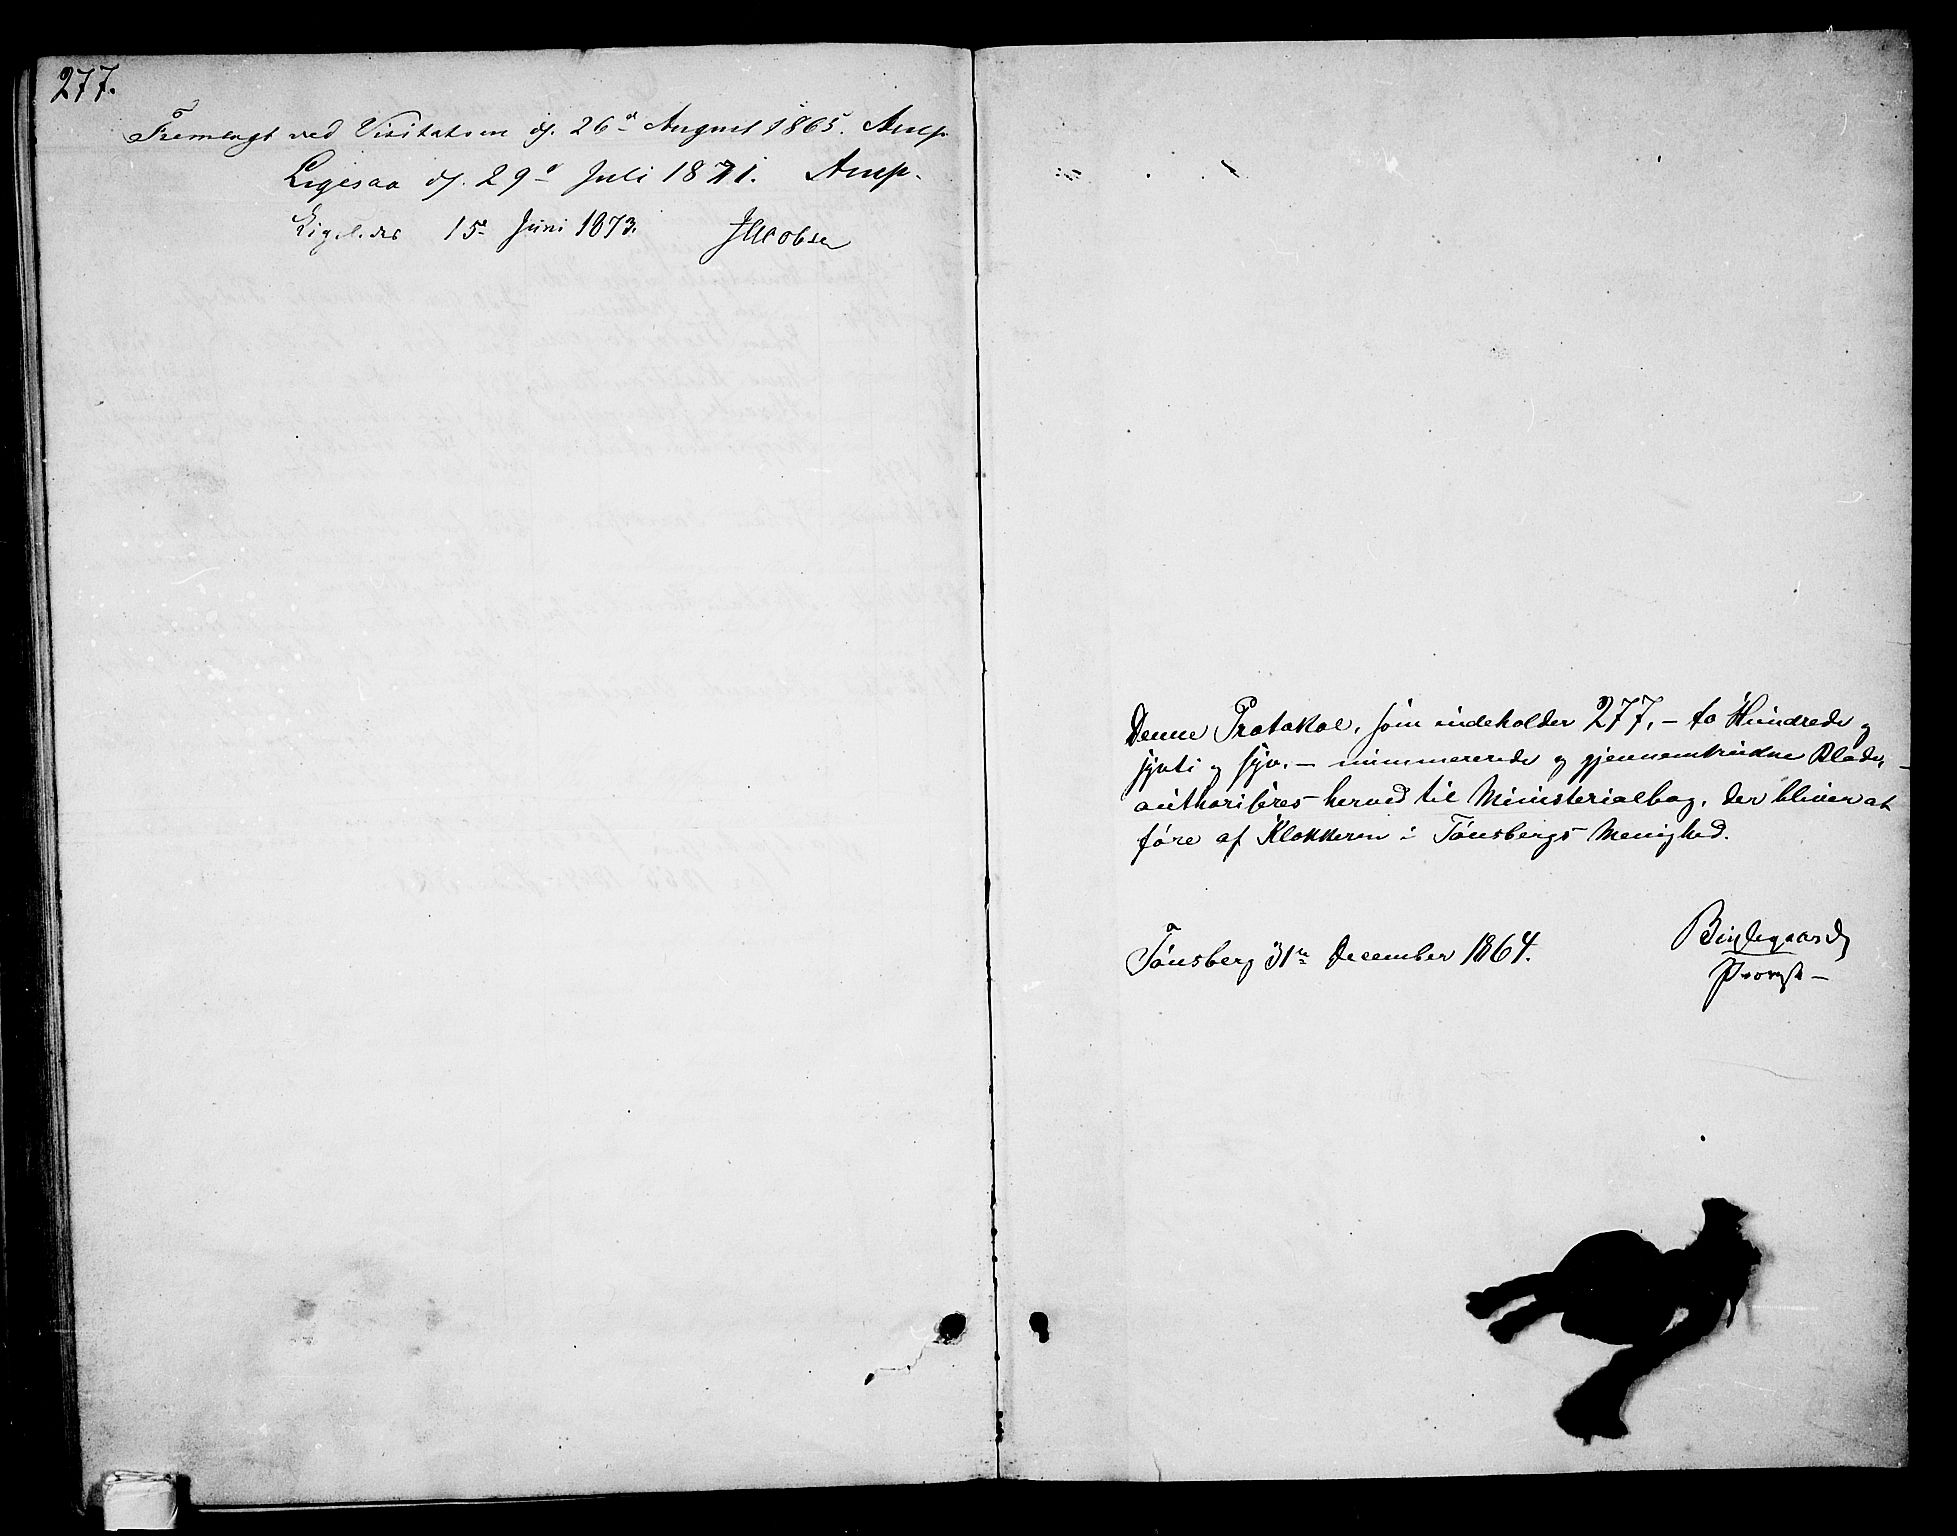 277.
Fremlagt ved Visitatsen d. 26d August 1865. Arup
Ligesaa d. 29d Juli 1871. Arup.
Ligeledes 15d Juni 1873. JJacobsen
Denne Protokol, som indeholder 277, – to Hundrede og
sytti og syv, – nummererede og gjennemtrukne Blade, –
authoriseres herved til Ministerialbog, der bliver at
føre af Klokkeren i Tønsbergs Menighed.
Tønsberg 31te December 1864.
Provst –